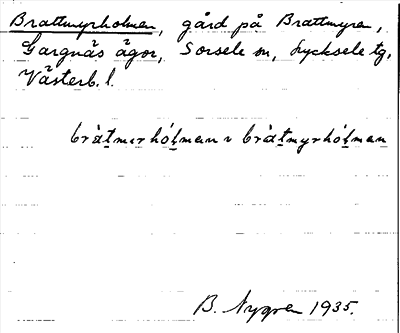 Brattmyrholmen, gård på Brattmyren,
Gargnäs ägor, Sorsele sn, Lycksele tg,
Västerb. l.
bràtmęrhólman ~ bràtmyrhólman
B. Nygren 1935.